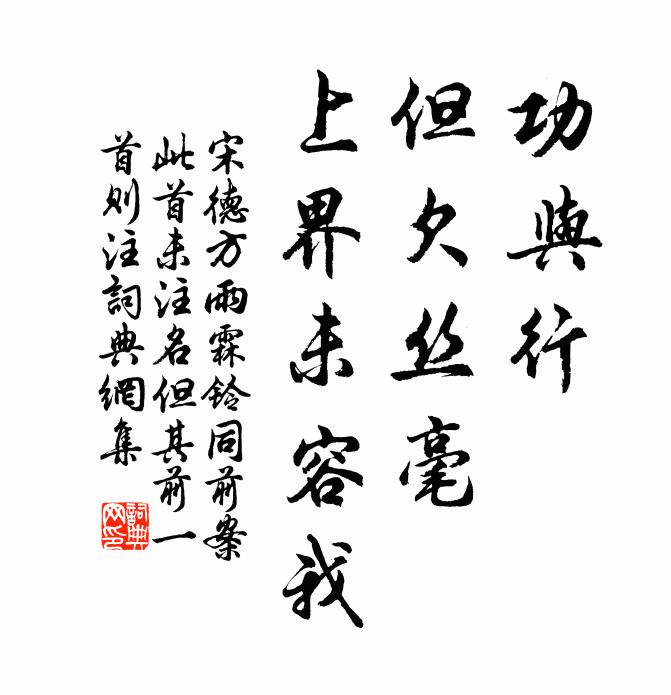 功與行
但欠丝毫
上界未容我
宋德方雨霖铃同前案
此首未注名但其前一
首则注詞典網集
詞典网印